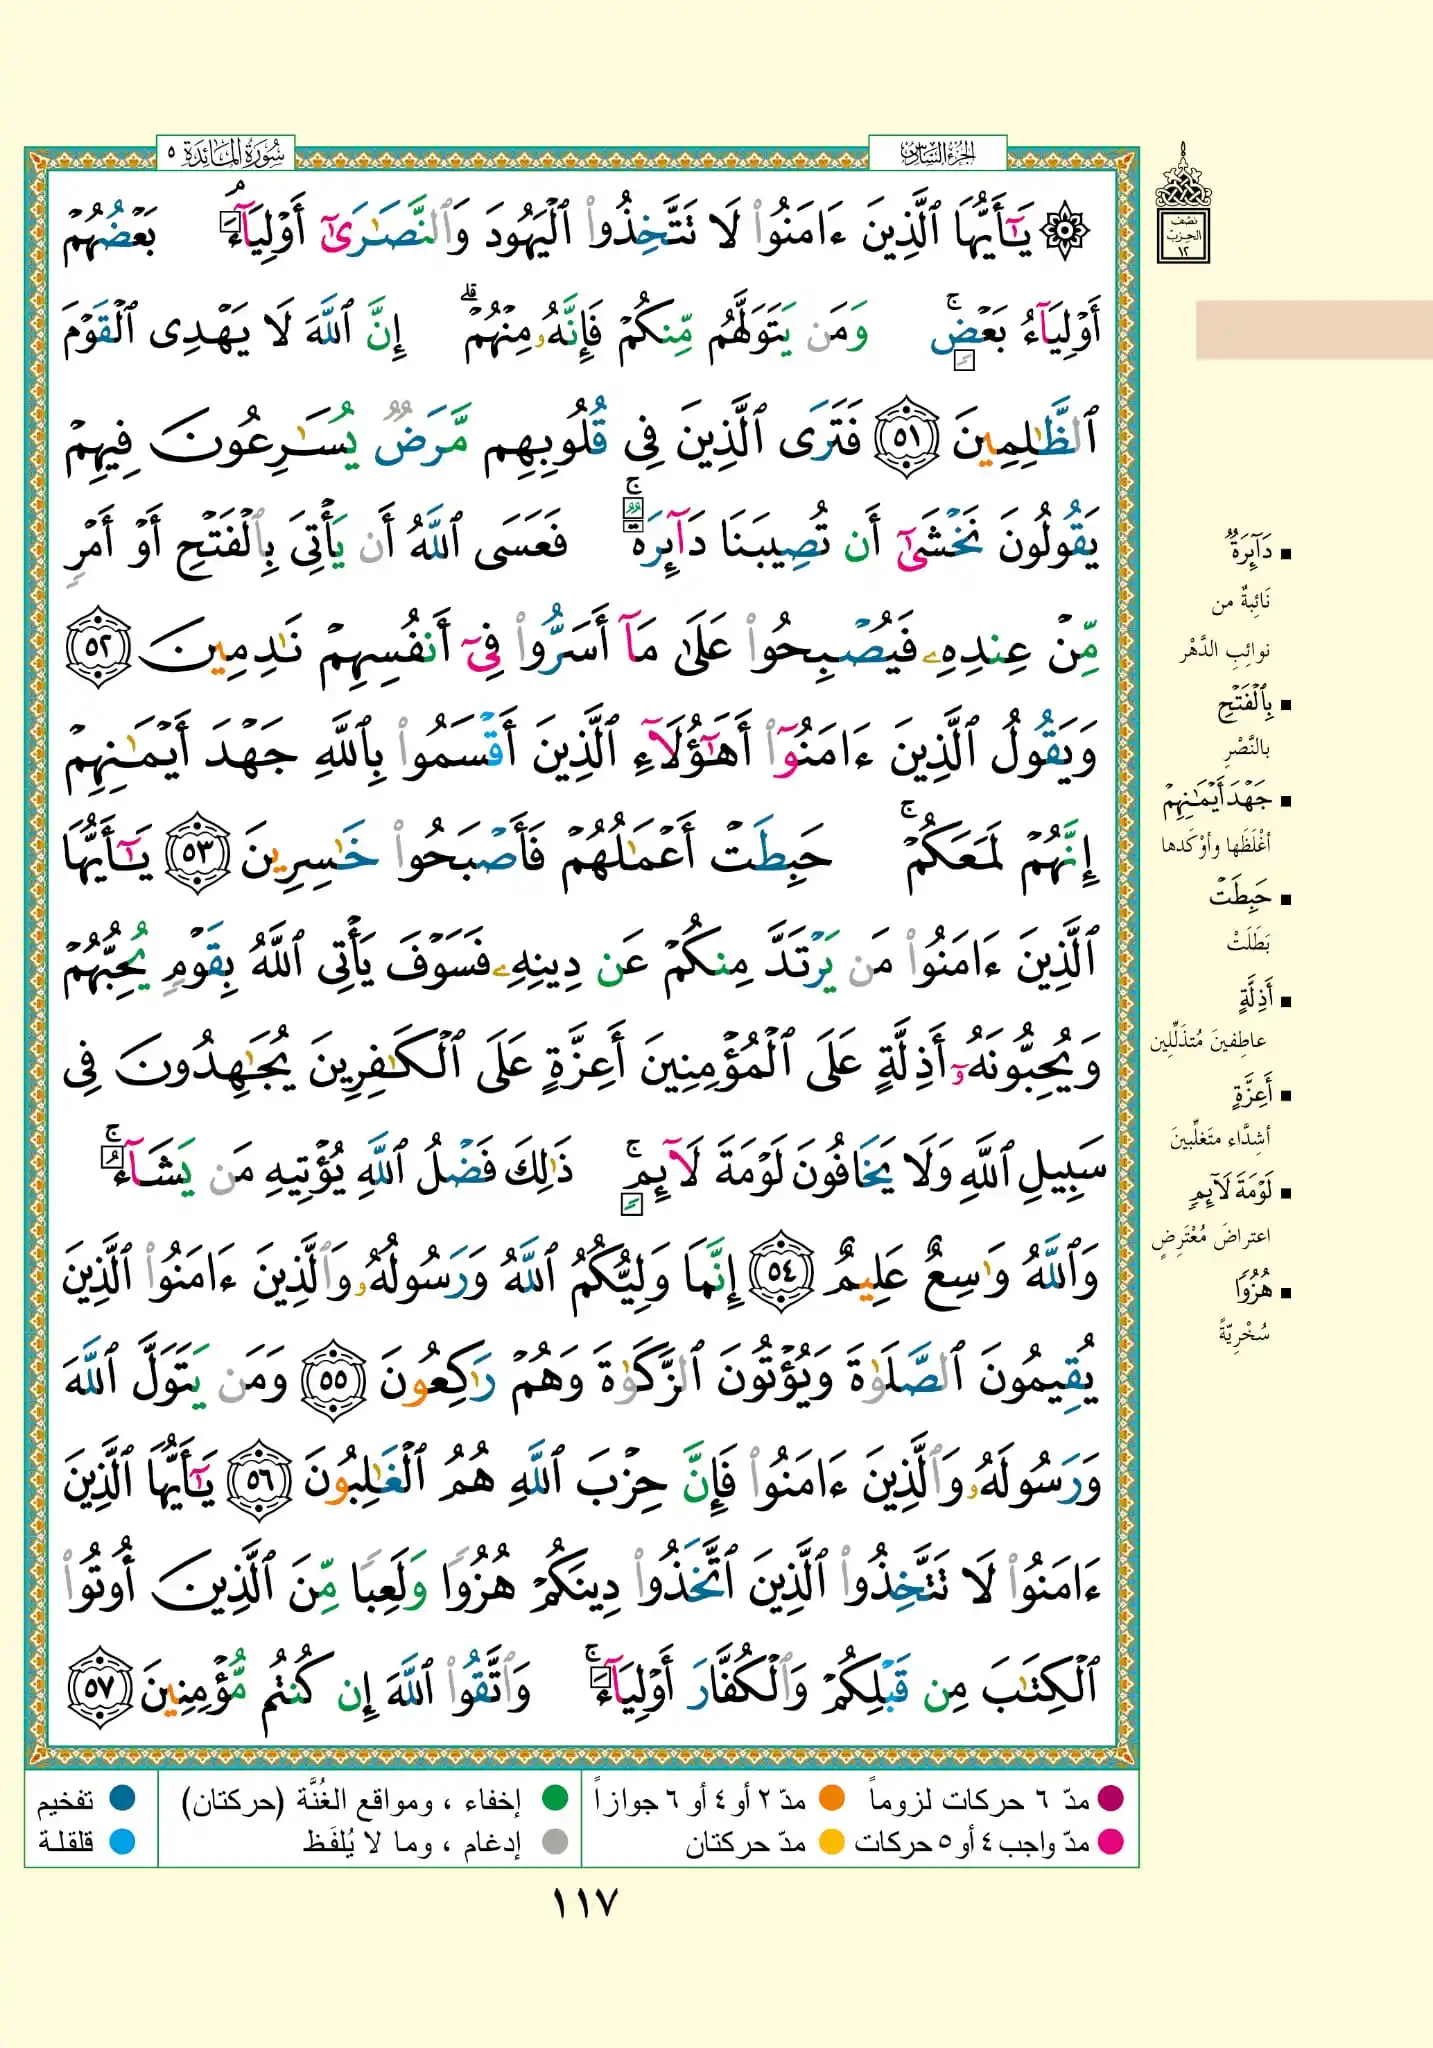 الجزء السادس
سورة المائدة ٥
نصف
الحزب
١٢
۞ يَـٰٓأَيُّهَا ٱلَّذِينَ ءَامَنُوا۟ لَا تَتَّخِذُوا۟ ٱلْيَهُودَ وَٱلنَّصَـٰرَىٰٓ أَوْلِيَآءَ ۘ بَعْضُهُمْ
أَوْلِيَآءُ بَعْضٍ ۚ وَمَن يَتَوَلَّهُم مِّنكُمْ فَإِنَّهُۥ مِنْهُمْ ۗ إِنَّ ٱللَّهَ لَا يَهْدِى ٱلْقَوْمَ
ٱلظَّـٰلِمِينَ ٥١ فَتَرَى ٱلَّذِينَ فِى قُلُوبِهِم مَّرَضٌ يُسَـٰرِعُونَ فِيهِمْ
يَقُولُونَ نَخْشَىٰٓ أَن تُصِيبَنَا دَآئِرَةٌ ۚ فَعَسَى ٱللَّهُ أَن يَأْتِىَ بِٱلْفَتْحِ أَوْ أَمْرٍ
مِّنْ عِندِهِۦ فَيُصْبِحُوا۟ عَلَىٰ مَآ أَسَرُّوا۟ فِىٓ أَنفُسِهِمْ نَـٰدِمِينَ ٥٢
وَيَقُولُ ٱلَّذِينَ ءَامَنُوٓا۟ أَهَـٰٓؤُلَآءِ ٱلَّذِينَ أَقْسَمُوا۟ بِٱللَّهِ جَهْدَ أَيْمَـٰنِهِمْ
إِنَّهُمْ لَمَعَكُمْ ۚ حَبِطَتْ أَعْمَـٰلُهُمْ فَأَصْبَحُوا۟ خَـٰسِرِينَ ٥٣ يَـٰٓأَيُّهَا
ٱلَّذِينَ ءَامَنُوا۟ مَن يَرْتَدَّ مِنكُمْ عَن دِينِهِۦ فَسَوْفَ يَأْتِى ٱللَّهُ بِقَوْمٍ يُحِبُّهُمْ
وَيُحِبُّونَهُۥٓ أَذِلَّةٍ عَلَى ٱلْمُؤْمِنِينَ أَعِزَّةٍ عَلَى ٱلْكَـٰفِرِينَ يُجَـٰهِدُونَ فِى
سَبِيلِ ٱللَّهِ وَلَا يَخَافُونَ لَوْمَةَ لَآئِمٍ ۚ ذَٰلِكَ فَضْلُ ٱللَّهِ يُؤْتِيهِ مَن يَشَآءُ ۚ
وَٱللَّهُ وَٰسِعٌ عَلِيمٌ ٥٤ إِنَّمَا وَلِيُّكُمُ ٱللَّهُ وَرَسُولُهُۥ وَٱلَّذِينَ ءَامَنُوا۟ ٱلَّذِينَ
يُقِيمُونَ ٱلصَّلَوٰةَ وَيُؤْتُونَ ٱلزَّكَوٰةَ وَهُمْ رَٰكِعُونَ ٥٥ وَمَن يَتَوَلَّ ٱللَّهَ
وَرَسُولَهُۥ وَٱلَّذِينَ ءَامَنُوا۟ فَإِنَّ حِزْبَ ٱللَّهِ هُمُ ٱلْغَـٰلِبُونَ ٥٦ يَـٰٓأَيُّهَا ٱلَّذِينَ
ءَامَنُوا۟ لَا تَتَّخِذُوا۟ ٱلَّذِينَ ٱتَّخَذُوا۟ دِينَكُمْ هُزُوًا وَلَعِبًا مِّنَ ٱلَّذِينَ أُوتُوا۟
ٱلْكِتَـٰبَ مِن قَبْلِكُمْ وَٱلْكُفَّارَ أَوْلِيَآءَ ۚ وَٱتَّقُوا۟ ٱللَّهَ إِن كُنتُم مُّؤْمِنِينَ ٥٧
دَآئِرَةٌ
نَائِبةٌ من
نوائِبِ الدَّهْر
بِٱلْفَتْحِ
بالنَّصْرِ
جَهْدَ أَيْمَـٰنِهِمْ
أغْلَظَها وأوْكَدها
حَبِطَتْ
بَطَلَتْ
أَذِلَّةٍ
عاطِفينَ مُتذَلِّلِين
أَعِزَّةٍ
أشِدَّاء متَغلِّبينَ
لَوْمَةَ لَآئِمٍ
اعتراضَ مُعْتَرِضٍ
هُزُوًا
سُخْرِيّةً
مدّ ٦ حركات لزوماً
مدّ ٢ أو ٤ أو ٦ جوازاً
إخفاء ، ومواقع الغُنَّة (حركتان)
تفخيم
مدّ واجب ٤ أو ٥ حركات
مدّ حركتان
إدغام ، وما لا يُلفَظ
قلقلة
١١٧